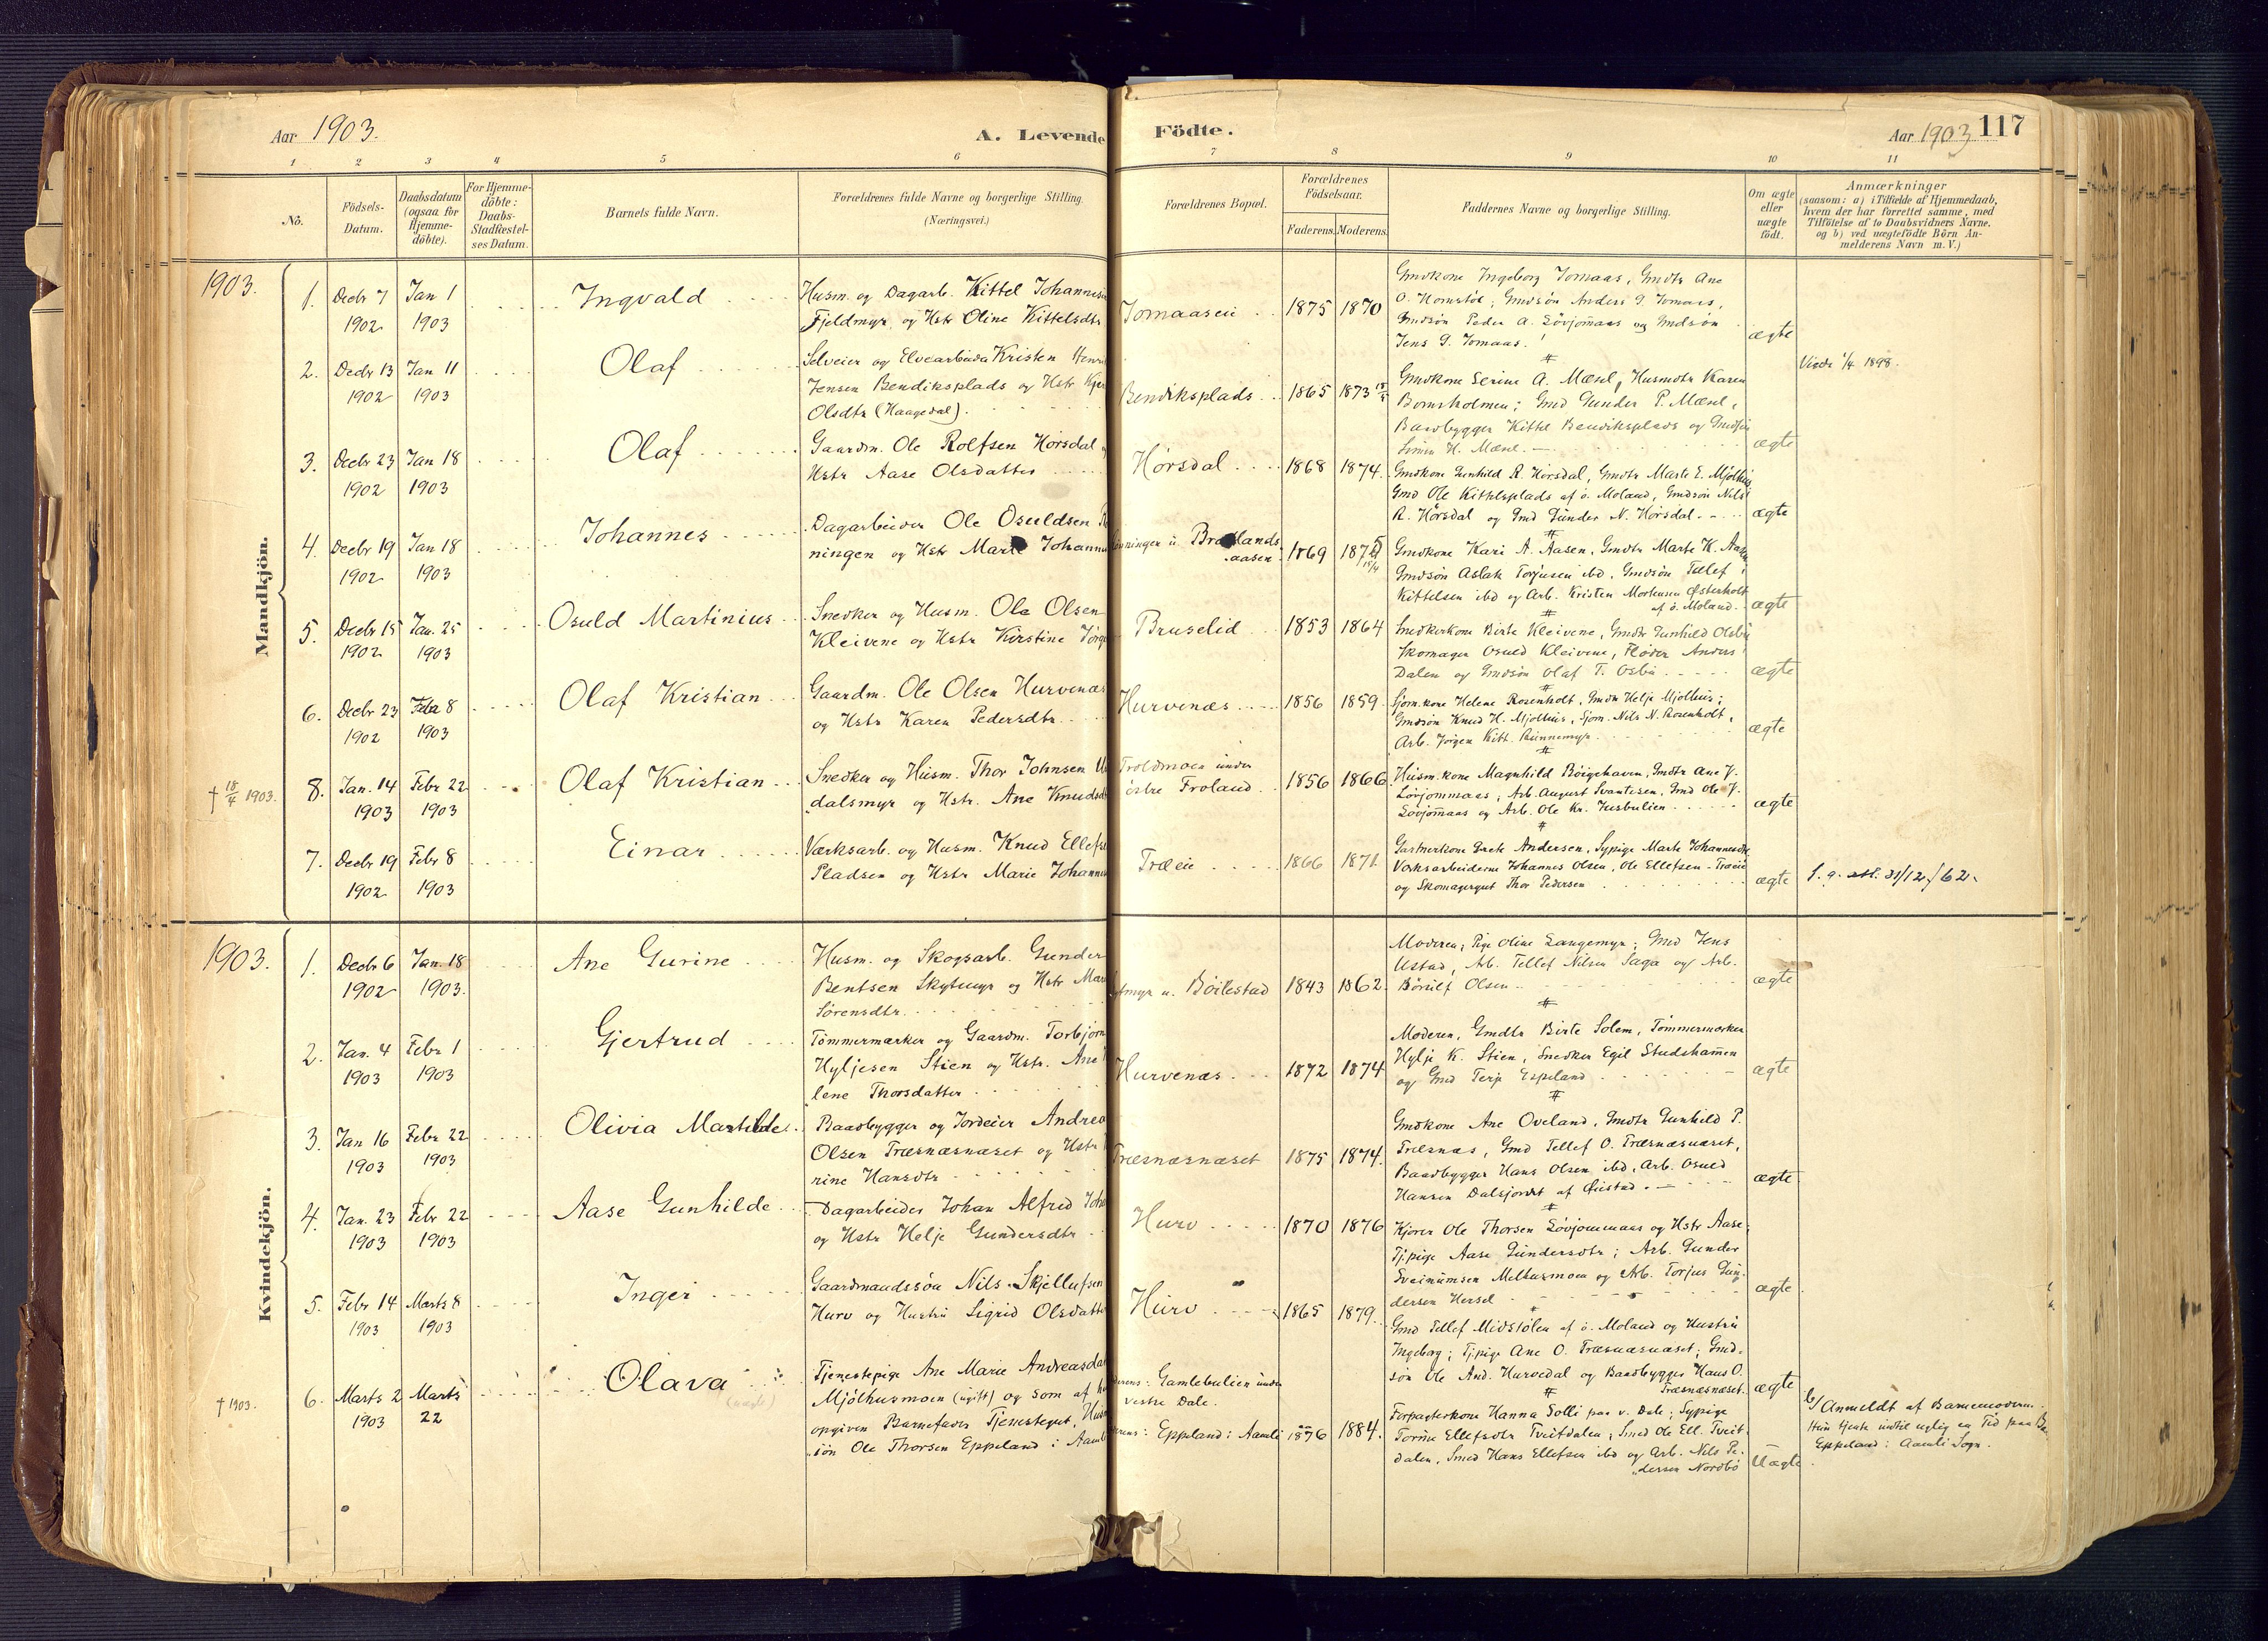 Aar 1903.
A. Levende Födte.
Aar 1903 117
1 2 3 4 5 6 7 8 9 10 11
No.
Födsels-
Datum.
Daabsdatum
(ogsaa for
Hjemme-
döbte).
For Hjemme-
döbte:
Daabs-
Stadfæstel-
ses Datum.
Barnets fulde Navn.
Forældrenes fulde Navne og borgerlige Stilling.
(Næringsvei.)
Forældrenes Bopæl.
Forældrenes
Födselsaar.
Faderens. Moderens.
Faddernes Navne og borgerlige Stilling.
Om ægte
eller
uægte
födt.
Anmærkninger
(saasom: a) i Tilfælde af Hjemmedaab,
hvem der har forrettet samme, med
Tilföielse af to Daabsvidners Navne.
og b) ved uægtefödte Börn An-
melderens Navn m. V.)
Mandkjön.
1903.
1. Decbr 7 Jan 1
1902 1903
Ingvald
Husm. og Dagarb. Kittel Johannes
Fjeldmyr og Hstr Oline Kittelsdtr
Jomaaseie 1875 1870
Gmdkone Ingeborg Jomaas, Gmdtr Ane
O. Homstöl; Gmdsön Anders J. Jomaas,
Gmdsön Peder A. Lövjomaas og Gmdsön
Jens J. Jomaas.
ægte
2. Decbr 13 Jan 11
1902 1903
Olaf
Selveier og Elvearbeider Kristen Henri
Jensen Bendiksplads og Hstr
Olsdtr (Haagedal).
Bendiksplads 1865 1873
Gmdkone Serine A. Mæsel, Husmdtr Karen
Bomsholmen; Gmd Gunder P. Mæsel,
Baadbygger Kittel Bendiksplads og Gmdsön
Simen H. Mæsel.
ægte
Viede 1/4 1898.
3. Decbr 23 Jan 18
1902 1903
Olaf
Gaardm. Ole Rolfsen Hörsdal
Hstr Aase Olsdatter
Hörsdal 1868 1874.
Gmdkone Gunhild R. Hörsdal, Gmdtr Marte E. Mjölhus
Gmd Ole Kittelsplads af ö. Moland, Gmdsön Nils
R. Hörsdal og Gmd Gunder N. Hörsdal.
ægte
4. Decbr 19 Jan 18
1902 1903
Johannes
Dagarbeider Ole Osuldsen
ningen og Hstr Marte Johann
ningen u. Braalands
aasen 1869 1875
Gmdkone Kari A. Aasen, Gmdtr Marte K. Aasen
Gmdsön Aslak Torjusen ibd, Gmdsön Tellef
Kittelsen ibd og Arb. Kristen Mortensen Österholt
af ö. Moland.
ægte
5. Decbr 15 Jan. 25
1902 1903
Osuld Martinius
Snedker og Husm. Ola Olsen
Kleivene og Hstr Kirstine Jörg
Bruselid 1853 1864
Snedkerkone Birte Kleivene, Gmdtr Gunhild Olsbu
Skomager Osuld Kleivene, Flöder Anders
Dalen og Gmdsön Olaf T. Osbu
ægte
6. Decbr 23 Febr 8
1902 1903
Olaf Kristian
Gaardm. Ole Olsen Hurvenæs
og Hstr Karen Pedersdtr
Hurvenæs 1856 1859
Sjöm.kone Helene Rosenholt, Gmdtr Helje Mjölhus;
Gmdsön Knud H. Mjölhus, Sjöm. Nils N. Rosenholt,
Arb. Jörgen Kitt. Rünnemyr
ægte
† 18/4 1903.
8. Jan. 14 Febr 22
1903 1903
Olaf Kristian
Snedker og Husm. Thor Johnsen
dalsmyr og Hstr. Ane Knudsd
Troldmoen under
östre Froland 1856 1866
Husm.kone Magnhild Böigehaven, Gmdtr Ane J.
Lövjommaas; Arb. August Svantesen, Gmd Ole J.
Lövjomaas og Arb. Ole Kr. Jusbulien
ægte
7. Decbr 19 Febr 8
1902 1903
Einar
Værksarb. og Husm. Knud Ellefs
Pladsen og Hstr Marie Johann
Træeie 1866 1871.
Gartnerkone Grete Andersen, Sypige Marte Johannesdtr
Værksarbeiderne Johannes Olsen, Ole Ellefsen Træeie
og Skomagergut Thor Pedersen
ægte
S. q. 31/12/62.
Kvindekjön.
1903.
1. Decbr 6 Jan. 18
1902 1903.
Ane Gurine
Husm. og Skogsarb. Gunder
Bentsen Skytemyr og Hstr Mar
Sörensdtr
tmyr u. Böilestad 1843 1862
Moderen; Pige Oline Langemyr; Gmd Jens
Ustad, Arb. Tellef Nilsen Saga og Arb.
Börulf Olsen
ægte
2. Jan. 4 Febr 1
1903 1903
Gjertrud
Tömmermærker og Gaardm. Torbjörn
Hyljesen Stien og Hstr. Ane
lene Thorsdatter
Hurvenæs 1872 1874
Moderen, Gmdtr Birte Solem, Tömmermærker
Hylje K. Stien, Snedker Egil Studshamen
og Gmd Terje Espeland
ægte
3. Jan 16 Febr 22
1903 1903
Olivia Mathilde
Baadbygger og Jordeier Andrea
Olsen Træsnæsnæset og Hstr
rine Hansdtr
Træsnæsnæset 1875 1874.
Gmdkone Ane Oveland, Gmdtr Gunhild P.
Trælsnæs, Gmd Tellef O. Træsnæsnæset,
Baadbygger Hans Olsen ibd, Arb. Osuld
Hansen Dalsjordet af Öiestad.
ægte
4. Jan. 23 Febr 22
1903 1903
Aase Gunhilde
Dagarbeider Johan Alfred Joh
og Hstr Helje Gundersdtr
Hurv 1870 1876
Kjörer Ole Thorsen Lövjommaas og Hstr Aase;
Tj.pige Aase Gundersdtr; Arb. Gunder
Sveinunsen Melhusmoen og Arb. Torjus Gun-
dersen Hersel
ægte
5. Febr 14 Marts 8
1903 1903
Inger
Gaardmandssön Nils Skjellufsen
Hurv og Hustru Sigrid Olsdatt
Hurv 1865 1879
Gmd Tellef Midstölen af ö. Moland og Hustru
Ingeborg; Tj.pige Ane O. Træsnæsnæset; Gmd-
sön Ole And. Hurvedal og Baadbygger Hans O.
Træsnæsnæset.
ægte
† 1903.
6. Marts 2 Marts
1903 22
Olava
(uægte)
Tjenestepige Ane Marie Andreasda
Mjölhusmoen (ugift) og som af
opgiven Barnefader Tjenestegut, Husm
sön Ole Thorsen Eppeland i Aaml
derens: Gamlebulien under
vestre Dale.
derens: Eppland i Aamli 1876 1884.
Forpagterkone Hanna Solli paa v. Dale; Sypige
Torine Ellefsdtr Tveitdalen; Smed Ole Ell. Tveit-
dalen, Smed Hans Ellefsen ibd og Arb. Nils Pe-
dersen Nordbö
Uægte
b/ Anmeldt af Barnemoderen.
Hun tjente indtil nylig en Tid paa
Eppeland i Aamli Sogn.